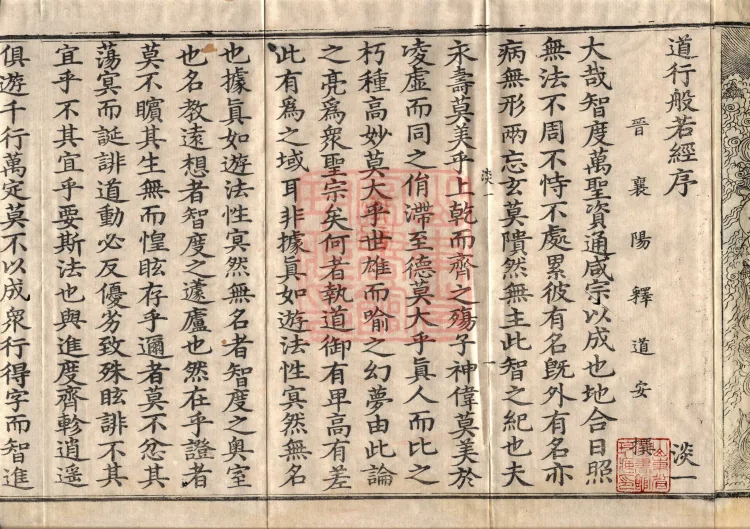 道行般若經序
淡一
晉襄陽釋道安撰
大哉智度萬聖資通咸宗以成也地合日照
無法不周不恃不處累彼有名旣外有名亦
病無形兩忘玄莫隤然無主此智之紀也夫
永壽莫美乎上乾而齊之殤子神偉莫美於
淡一
凌虛而同之㳙滯至德莫大乎眞人而比之
朽種高妙莫大乎世雄而喻之幻夢由此論
之亮爲衆聖宗矣何者執道御有卑高有差
此有爲之域耳非據眞如遊法性冥然無名
也據眞如遊法性冥然無名者智度之奧室
也名教遠想者智度之蘧廬也然在乎證者
莫不曠其生無而惶眩存乎邇者莫不忿其
蕩冥而誕誹道動必反優劣致殊眩誹不其
宜乎不其宜乎要斯法也與進度齊軫逍遥
俱遊千行萬定莫不以成衆行得字而智進